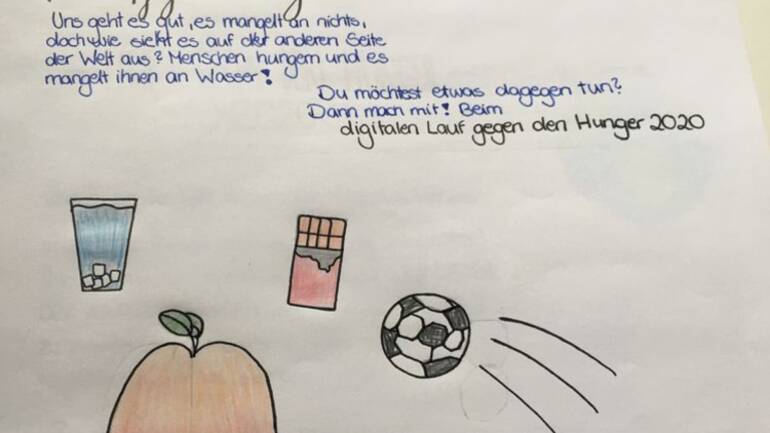 Uns geht es gut, es mangelt an nichts,
doch wie sieht es auf der anderen Seite
der Welt aus? Menschen hungern und es
mangelt ihnen an Wasser!
Du möchtest etwas dagegen tun?
Dann mach mit! Beim
digitalen Lauf gegen den Hunger 2020